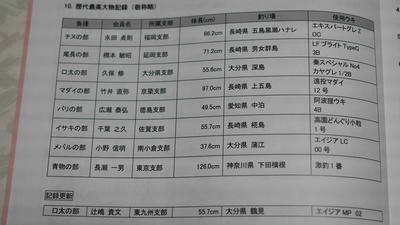 10. 歴代最高大物記録（敬称略）
魚種 会員名 所属支部 体長(cm) 釣り場 使用ウキ
チヌの部 永田 貞則 福岡支部 66.2cm 長崎県 五島黒瀬ハナレ エキスパートグレZ OC
尾長の部 橋本 敏昭 延岡支部 71.2cm 長崎県 男女群島 LFブライト TypeG 3B
口太の部 久保 修 大分県支部 55.6cm 大分県 深島 秦スペシャル No4 カヤグレ 1/2B
マダイの部 竹井 直弥 京築支部 97.0cm 長崎県 上五島 遠投マダイ 12号
バリの部 広瀬 泰弘 徳島支部 49.5cm 愛知県 中泊 阿波狸ウキ 4B
イサキの部 千葉 之久 佐賀支部 55.7cm 長崎県 椛島 高園どんぐり小粒 1号
メバルの部 小野 信明 南小倉支部 37.6cm 大分県 蒲江 エイジア LC 00号
青物の部 長瀬 一男 東京支部 126.0cm 神奈川県 下田横根 激釣1番
記録更新
口太の部 辻嶋 貴文 東九州支部 55.7cm 大分県 鶴見 エイジア MP 02